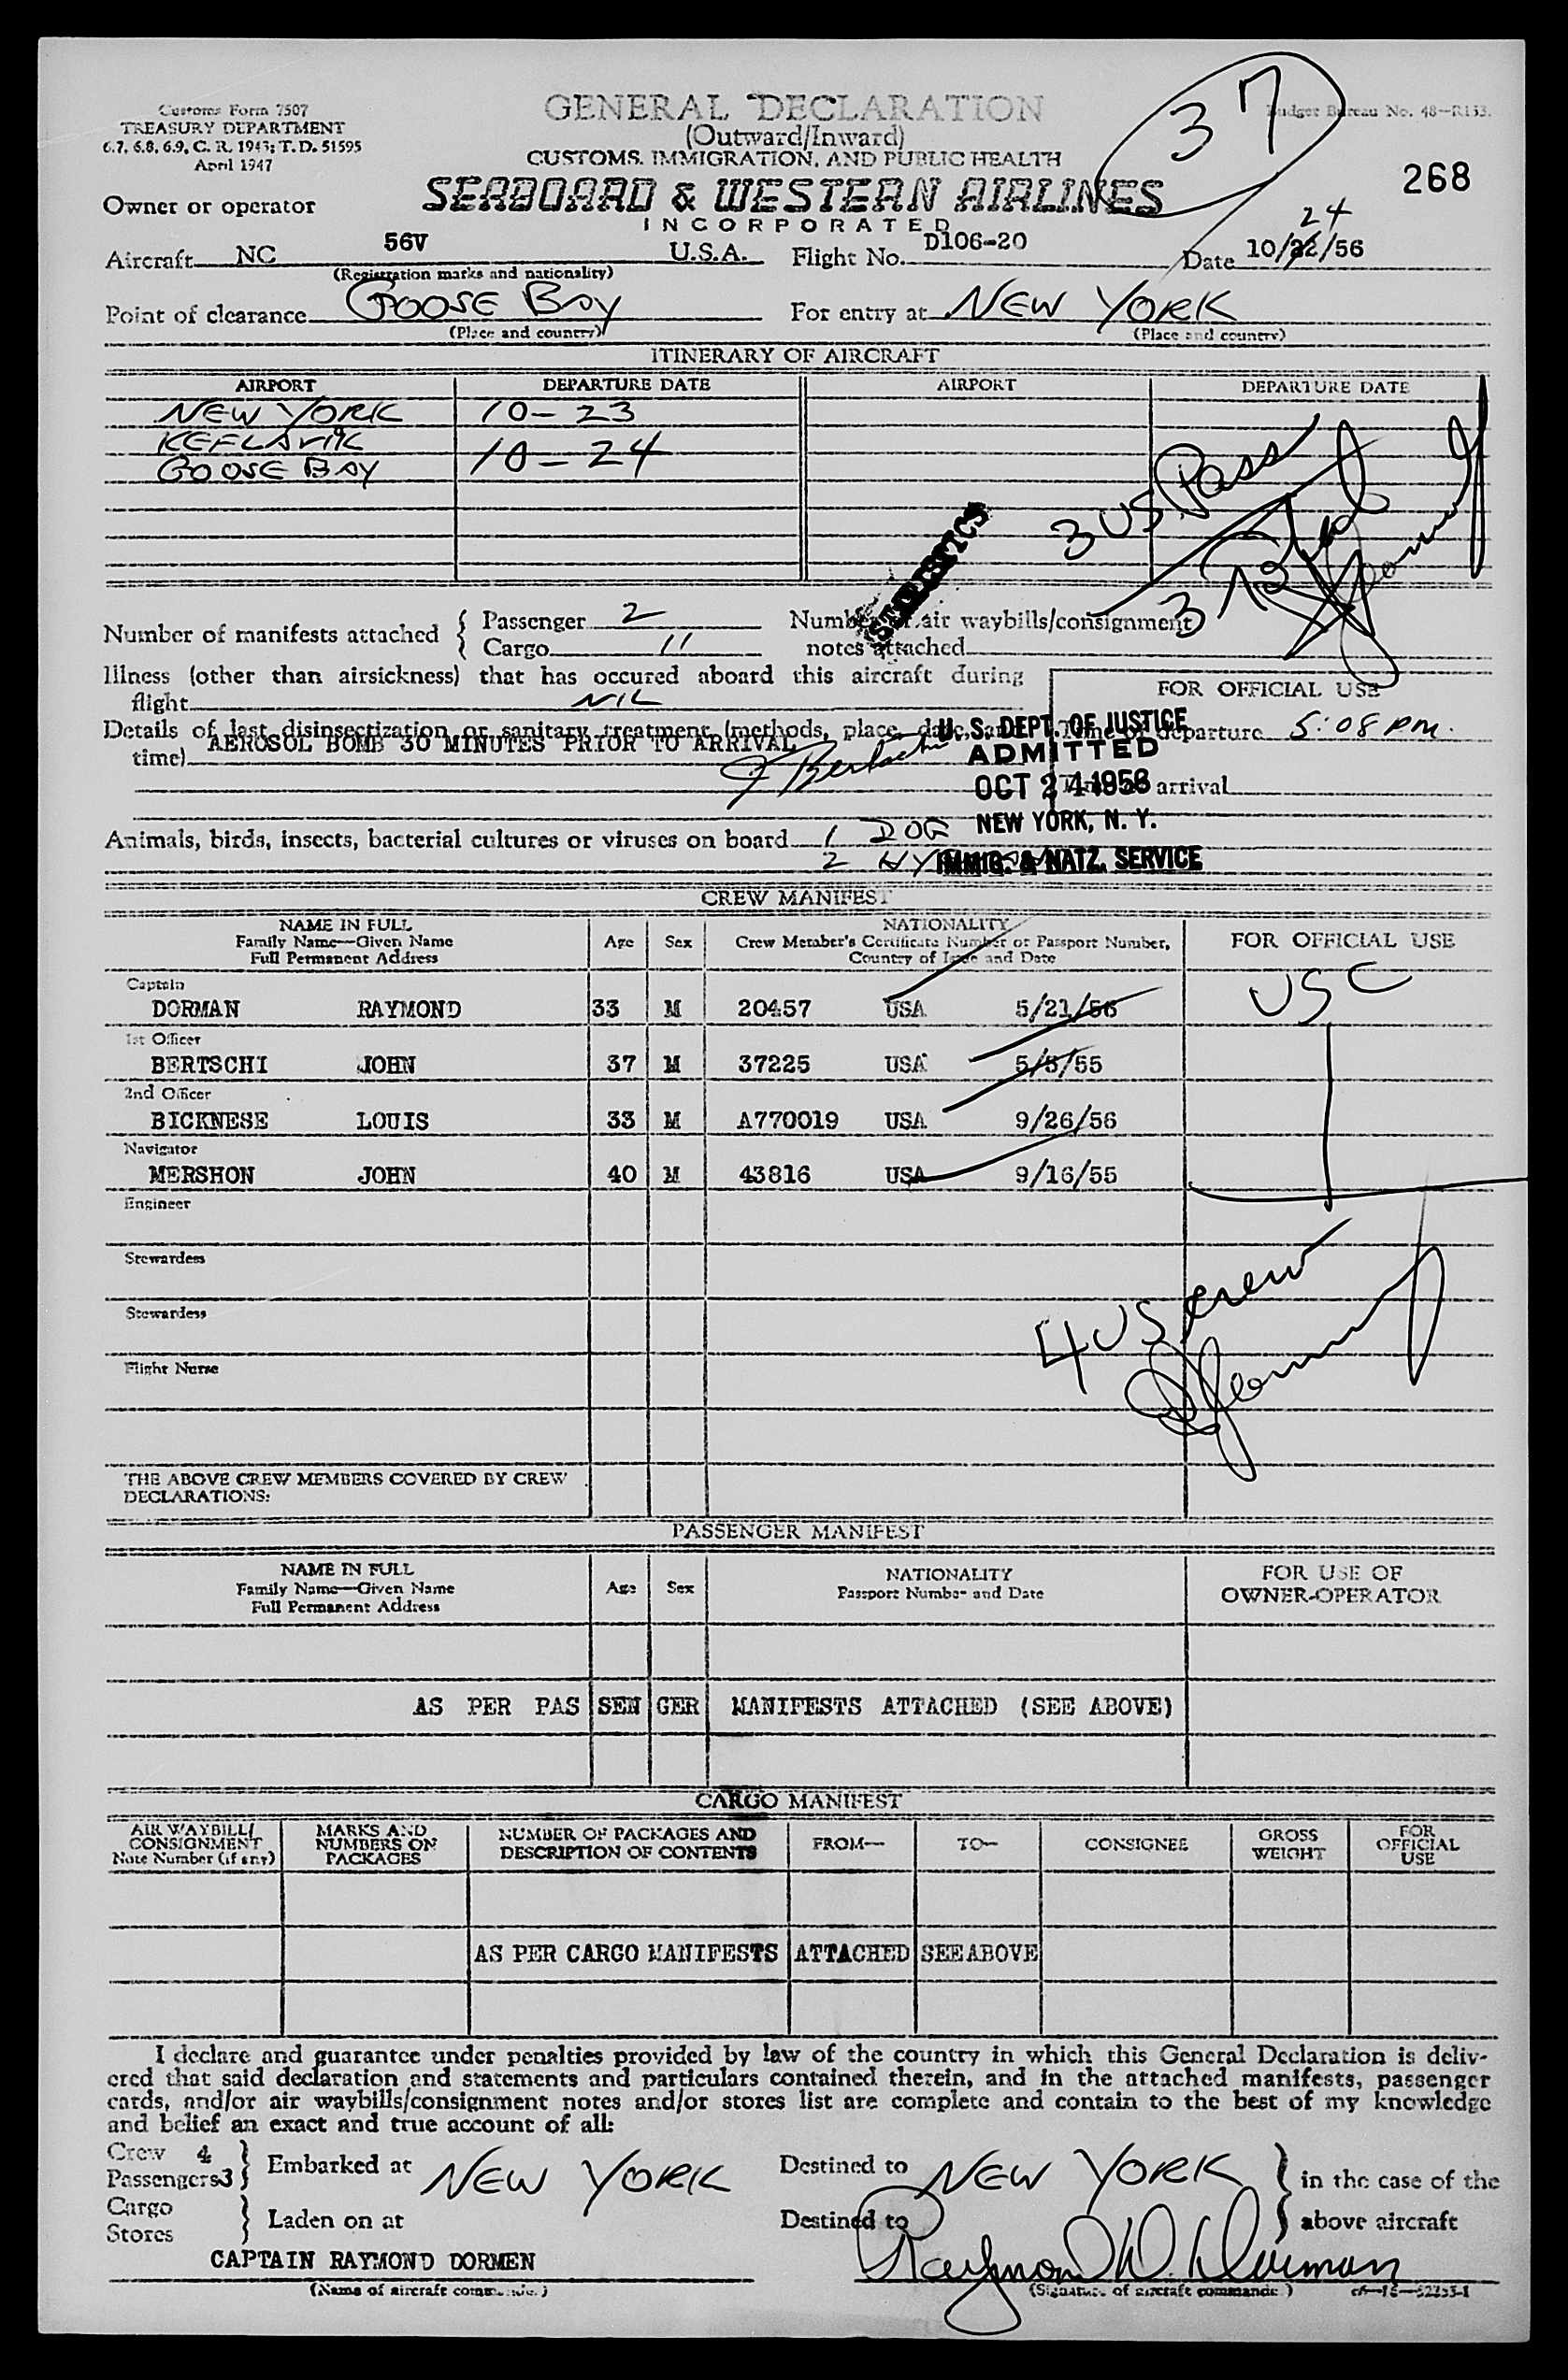 Customs Form 7507
TREASURY DEPARTMENT
6.7, 6.8, 6.9, C. R. 1943; T. D. 51595
April 1947
GENERAL DECLARATION
(Outward/Inward)
CUSTOMS, IMMIGRATION, AND PUBLIC HEALTH
37
Budget Bureau No. 48-R153.
268
Owner or operator SEABOARD & WESTERN AIRLINES
INCORPORATED
Aircraft NC 56V U.S.A. Flight No. D106-20 Date 10/22/56 24
(Registration marks and nationality)
Point of clearance GOOSE BAY For entry at NEW YORK
(Place and country) (Place and country)
ITINERARY OF AIRCRAFT
AIRPORT DEPARTURE DATE AIRPORT DEPARTURE DATE
NEW YORK 10-23
KEFLAVIK
GOOSE BAY 10-24
3 US Pass
3
STATISTICS
Number of manifests attached { Passenger 2 Number of air waybills/consignment
Cargo 11 notes attached
Illness (other than airsickness) that has occured aboard this aircraft during
flight NIL
FOR OFFICIAL USE
Details of last disinsectization or sanitary treatment (methods, place, date, and
time) AEROSOL BOMB 30 MINUTES PRIOR TO ARRIVAL
J Bertschi
Time of departure 5:08 PM.
Time of arrival
U. S. DEPT. OF JUSTICE
ADMITTED
OCT 24 1956
NEW YORK, N. Y.
IMMIG. & NATZ. SERVICE
Animals, birds, insects, bacterial cultures or viruses on board 1 DOG
2
CREW MANIFEST
NAME IN FULL
Family Name—Given Name
Full Permanent Address
Age Sex
NATIONALITY
Crew Member's Certificate Number or Passport Number,
Country of Issue and Date
FOR OFFICIAL USE
Captain
DORMAN RAYMOND 33 M 20457 USA 5/21/56 USC
1st Officer
BERTSCHI JOHN 37 M 37225 USA 5/5/55
2nd Officer
BICKNESE LOUIS 33 M A770019 USA 9/26/56
Navigator
MERSHON JOHN 40 M 43816 USA 9/16/55
Engineer
Stewardess
Stewardess
4 US crew
Flight Nurse
THE ABOVE CREW MEMBERS COVERED BY CREW
DECLARATIONS:
PASSENGER MANIFEST
NAME IN FULL
Family Name—Given Name
Full Permanent Address
Age Sex
NATIONALITY
Passport Number and Date
FOR USE OF
OWNER-OPERATOR
AS PER PAS SEN GER MANIFESTS ATTACHED (SEE ABOVE)
CARGO MANIFEST
AIR WAYBILL/
CONSIGNMENT
Note Number (if any)
MARKS AND
NUMBERS ON
PACKAGES
NUMBER OF PACKAGES AND
DESCRIPTION OF CONTENTS
FROM—
TO—
CONSIGNEE
GROSS
WEIGHT
FOR
OFFICIAL
USE
AS PER CARGO MANIFESTS ATTACHED SEE ABOVE
I declare and guarantee under penalties provided by law of the country in which this General Declaration is deliv-
ered that said declaration and statements and particulars contained therein, and in the attached manifests, passenger
cards, and/or air waybills/consignment notes and/or stores list are complete and contain to the best of my knowledge
and belief an exact and true account of all:
Crew 4
Passengers 3 } Embarked at NEW YORK Destined to NEW YORK } in the case of the
Cargo
Stores } Laden on at Destined to } above aircraft
CAPTAIN RAYMOND DORMEN Raymond W. Dorman
(Name of aircraft commander) (Signature of aircraft commander)